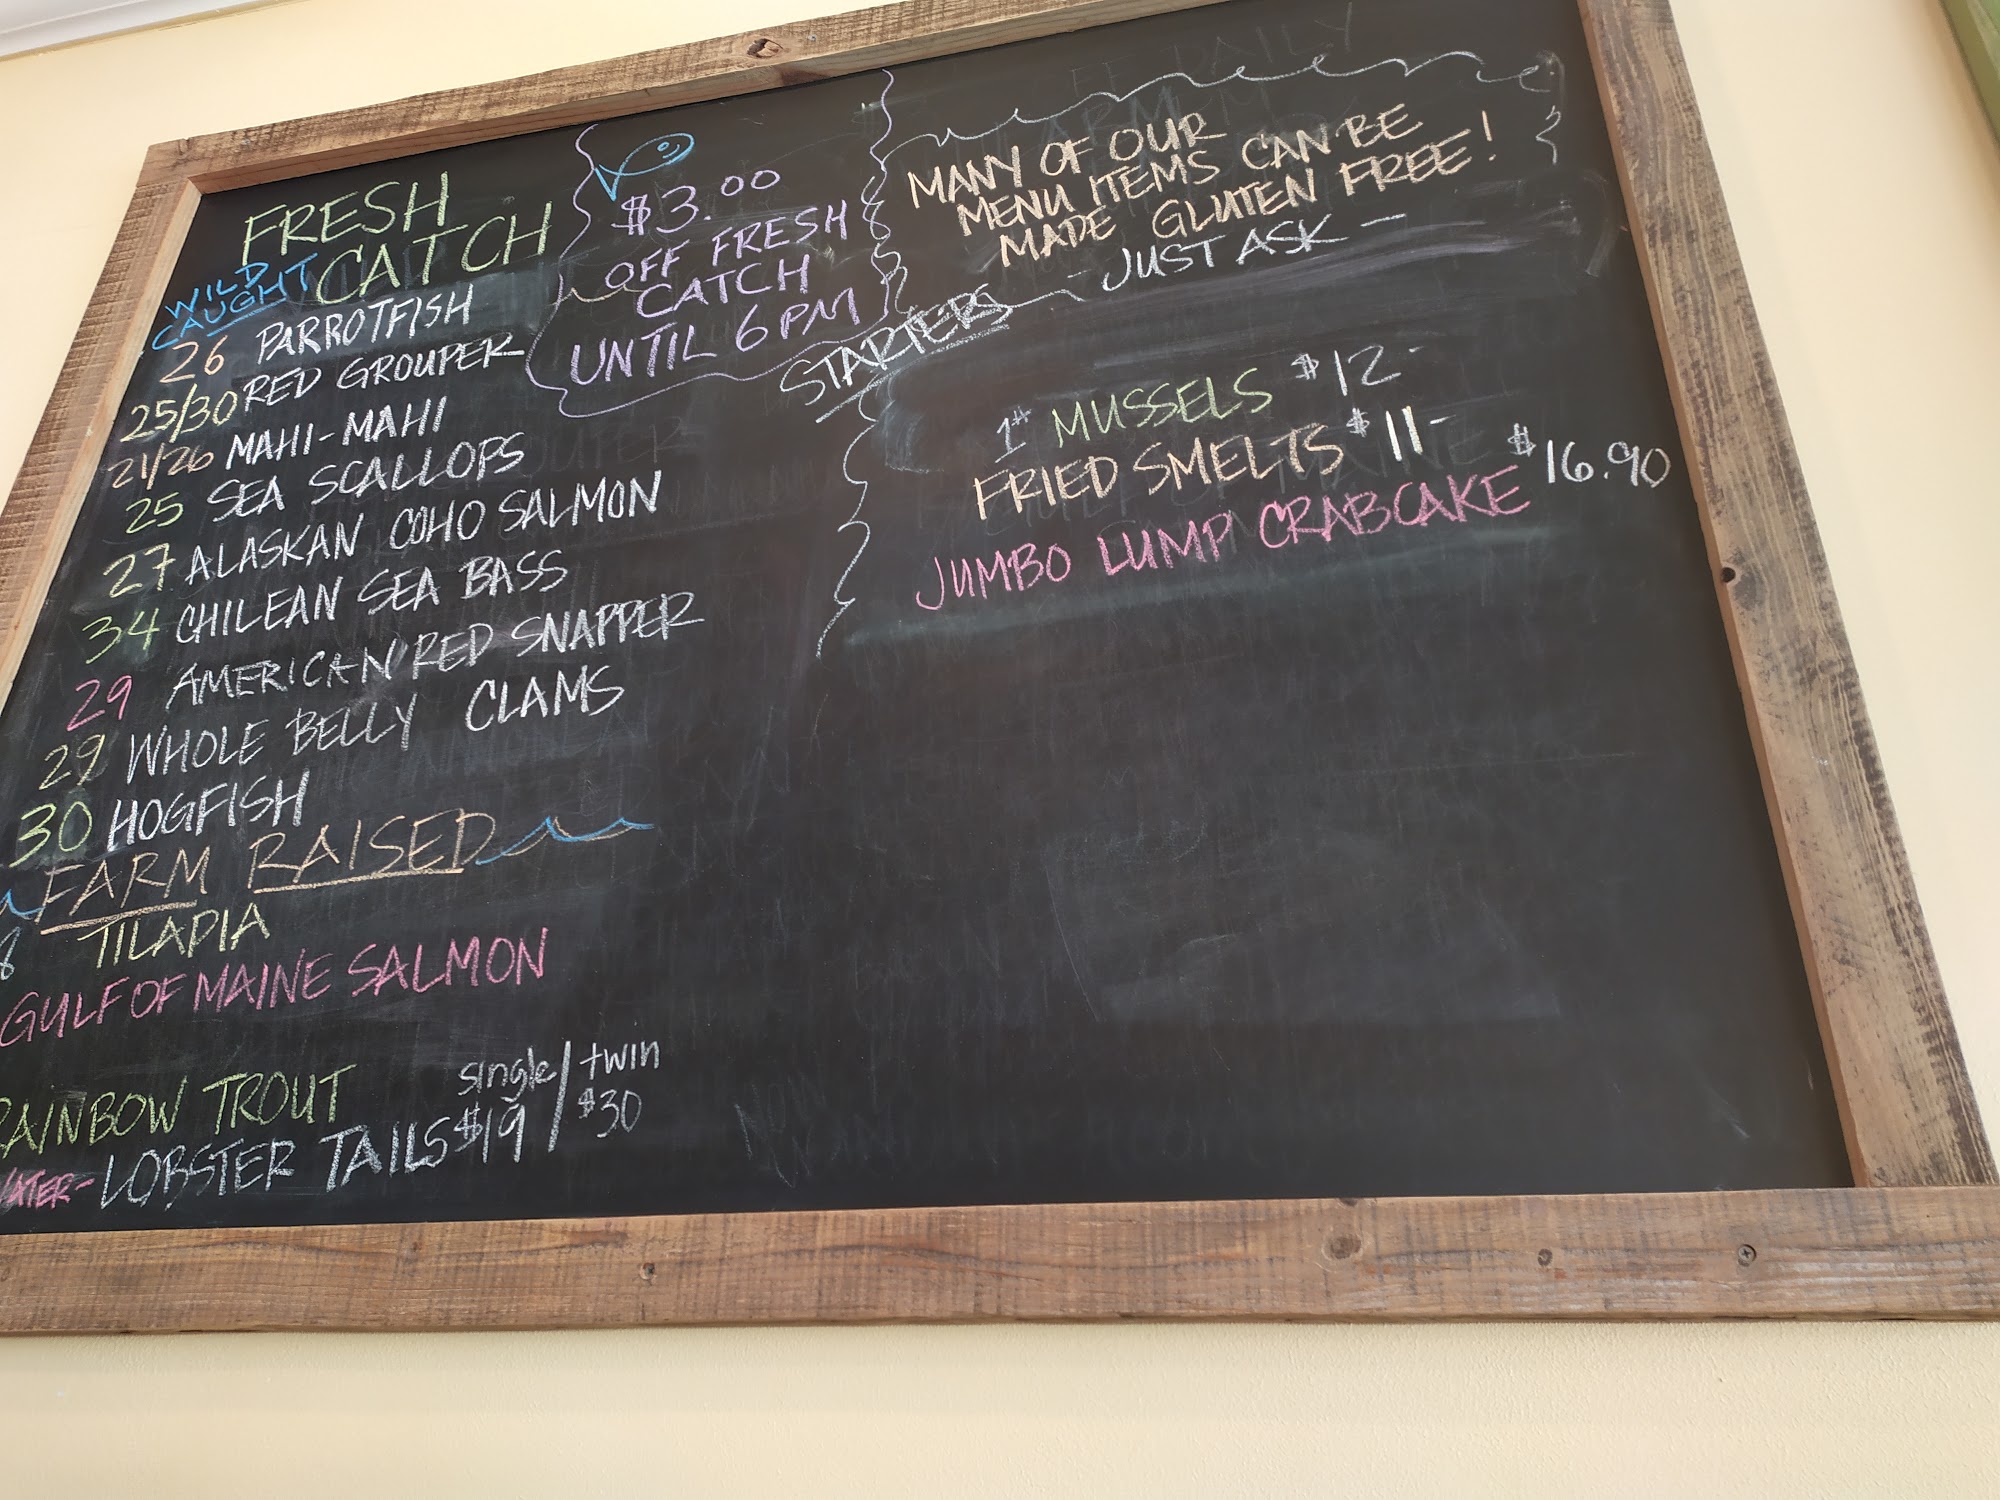 FRESH
CATCH
WILD
CAUGHT
26 PARROTFISH
25/30 RED GROUPER
21/26 MAHI-MAHI
25 SEA SCALLOPS
27 ALASKAN COHO SALMON
34 CHILEAN SEA BASS
29 AMERICAN RED SNAPPER
29 WHOLE BELLY CLAMS
30 HOGFISH
FARM RAISED
8 TILAPIA
GULF OF MAINE SALMON
RAINBOW TROUT
single/twin
LOBSTER TAILS $19/$30
$3.00
OFF FRESH
CATCH
UNTIL 6PM
MANY OF OUR
MENU ITEMS CAN BE
MADE GLUTEN FREE!
- JUST ASK -
STARTERS
1# MUSSELS $12-
FRIED SMELTS $11-
JUMBO LUMP CRABCAKE $16.90